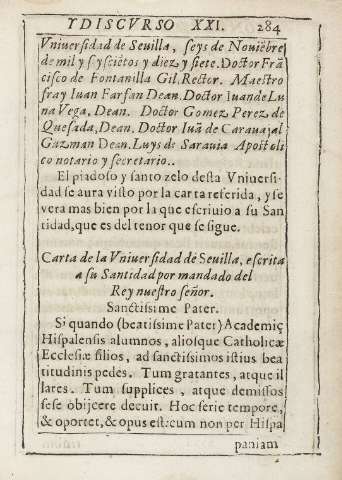 Y DISCVRSO XXI. 284
Vniuersidad de Seuilla, seys de Nouiẽbre
de mil y seysciẽtos y diez y siete. Doctor Frã
cisco de Fontanilla Gil, Rector. Maestro
fray Iuan Farfan Dean. Doctor Iuan de Lu
na Vega, Dean. Doctor Gomez Perez de
Quesada, Dean. Doctor Iuã de Carauajal
Guzman Dean. Luys de Sarauia Apostoli
co notario y secretario..
El piadoso y santo zelo desta Vniuersi-
dad se aura visto por la carta referida, y se
vera mas bien por la que escriuio a su San
tidad, que es del tenor que se sigue.
Carta de la Vniuersidad de Seuilla, escrita
a su Santidad por mandado del
Rey nuestro señor.
Sanctissime Pater.
Si quando (beatissime Pater) Academiç
Hispalensis alumnos, aliosque Catholicæ
Ecclesiæ filios, ad sanctissimos istius bea
titudinis pedes. Tum gratantes, atque il
lares. Tum supplices, atque demissos
sese obijcere decuit. Hoc serie tempore,
& oportet, & opus est: cum non per Hispa
paniam